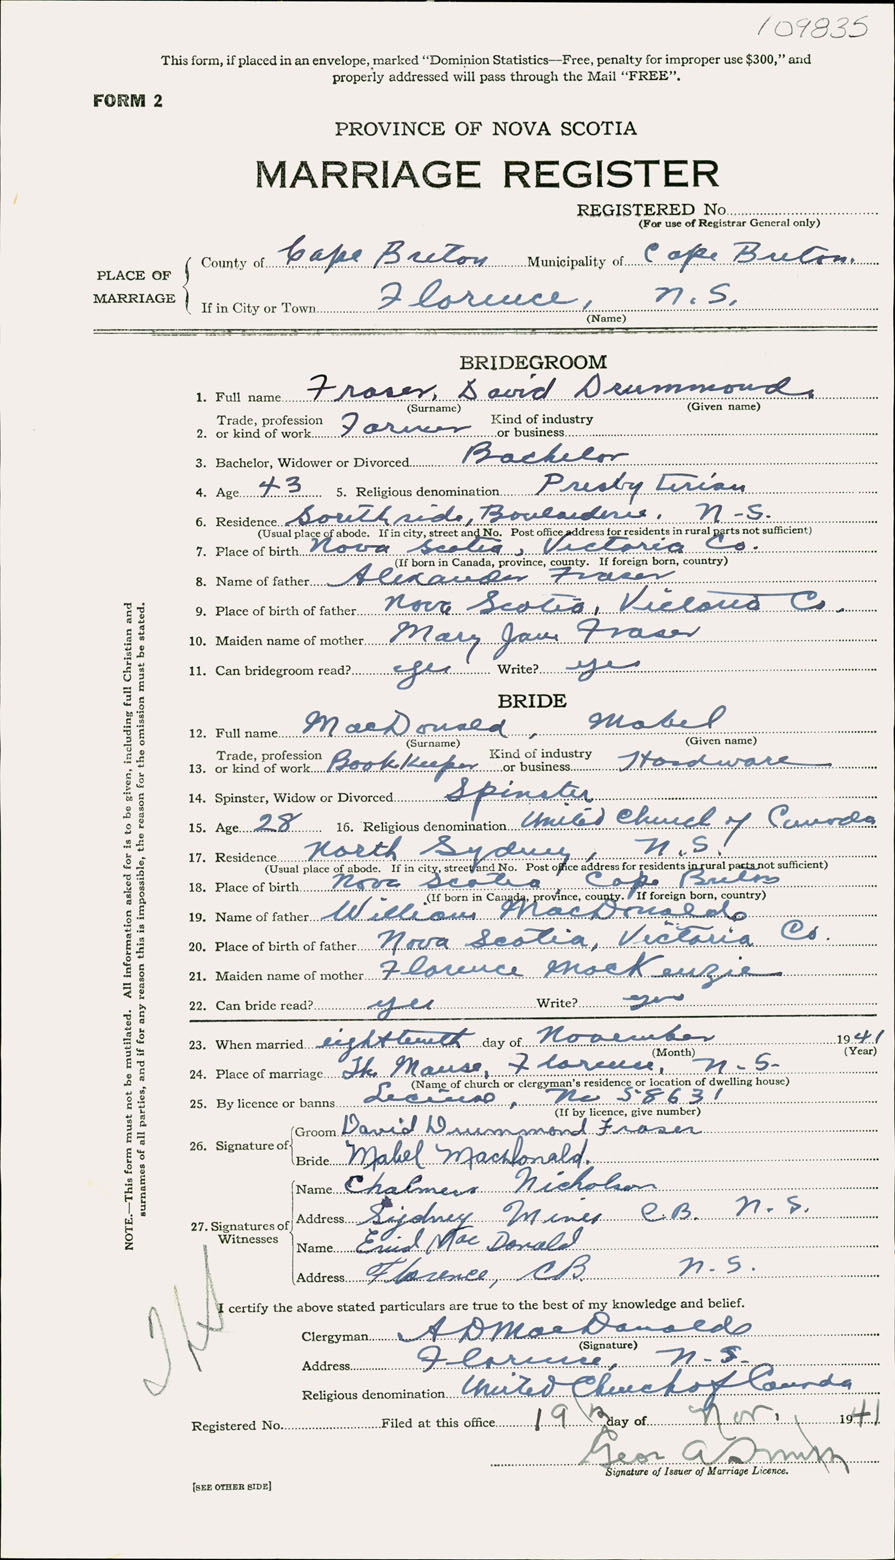 109835
This form, if placed in an envelope, marked "Dominion Statistics—Free, penalty for improper use $300," and
properly addressed will pass through the Mail "FREE".
FORM 2
PROVINCE OF NOVA SCOTIA
MARRIAGE REGISTER
REGISTERED No.
(For use of Registrar General only)
PLACE OF MARRIAGE
County of Cape Breton Municipality of Cape Breton.
If in City or Town Florence, N.S.
(Name)
BRIDEGROOM
1. Full name Fraser, David Drummond.
(Surname) (Given name)
Trade, profession Kind of industry
2. or kind of work Farmer or business
3. Bachelor, Widower or Divorced Bachelor
4. Age 43 5. Religious denomination Presbyterian
6. Residence Southside, Boularderie. N-S.
(Usual place of abode. If in city, street and No. Post office address for residents in rural parts not sufficient)
7. Place of birth Nova Scotia, Victoria Co.
(If born in Canada, province, county. If foreign born, country)
8. Name of father Alexander Fraser
9. Place of birth of father Nova Scotia, Victoria Co.
10. Maiden name of mother Mary Jane Fraser
11. Can bridegroom read? yes Write? yes
BRIDE
12. Full name MacDonald, Mabel
(Surname) (Given name)
Trade, profession Kind of industry
13. or kind of work BookKeeper or business Hardware
14. Spinster, Widow or Divorced Spinster
15. Age 28 16. Religious denomination United Church of Canada
17. Residence North Sydney, N.S.
(Usual place of abode. If in city, street and No. Post office address for residents in rural parts not sufficient)
18. Place of birth Nova Scotia, Cape Breton
(If born in Canada, province, county. If foreign born, country)
19. Name of father William MacDonald
20. Place of birth of father Nova Scotia, Victoria Co.
21. Maiden name of mother Florence MacKenzie
22. Can bride read? yes Write? yes
23. When married eighteenth day of November 1941
(Month) (Year)
24. Place of marriage The Manse, Florence, N-S-
(Name of church or clergyman's residence or location of dwelling house)
25. By licence or banns License, No 58631
(If by licence, give number)
26. Signature of Groom David Drummond Fraser
Bride Mabel MacDonald.
27. Signatures of Witnesses
Name Chalmers Nicholson
Address Sydney Mines C.B. N.S.
Name Enid MacDonald
Address Florence, CB N.S.
I certify the above stated particulars are true to the best of my knowledge and belief.
Clergyman A D MacDonald
(Signature)
Address Florence, N-S.
Religious denomination United Church of Canada
Registered No. Filed at this office 19 day of Nov. 1941
Geo A Smith
Signature of Issuer of Marriage Licence.
[SEE OTHER SIDE]
NOTE.—This form must not be mutilated. All information asked for is to be given, including full Christian and
surnames of all parties, and if for any reason this is impossible, the reason for the omission must be stated.